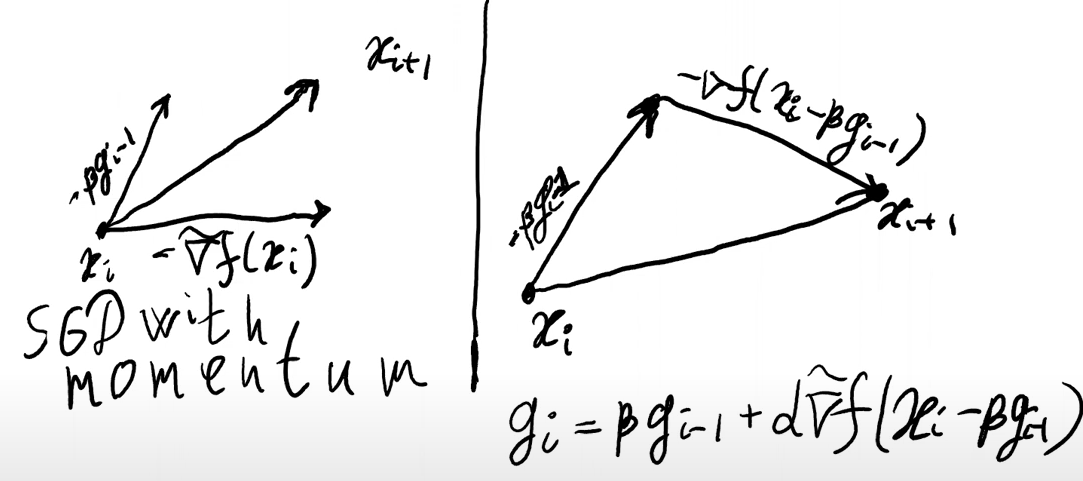 x_{i+1}
-βg_{i-1}
x_i
-∇̃f(x_i)
SGD with
momentum
-∇f(x_i-βg_{i-1})
-βg_{i-1}
x_{i+1}
x_i
g_i = βg_{i-1} + α∇̃f(x_i-βg_{i-1})